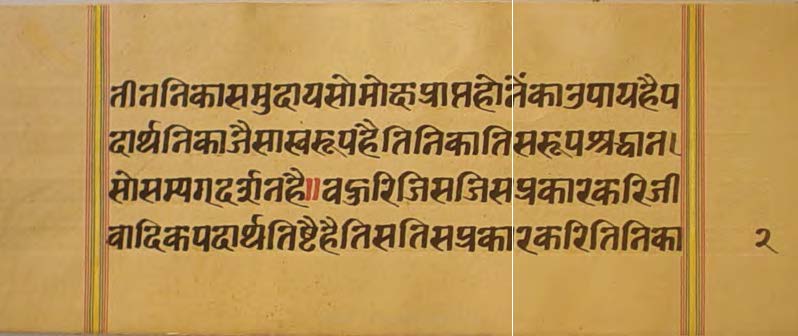 तीननिका समुदाय सो मोक्ष प्राप्त होनेंका उपाय है प
दार्थनिका जैसा स्वरूप है तिनिका तिस रूप श्रद्धान।
सो सम्यग्दर्शन है॥ वहुरि जिस जिस प्रकार करि जी
वादिक पदार्थ तिष्टै है तिस तिस प्रकार करि तिनिका
२